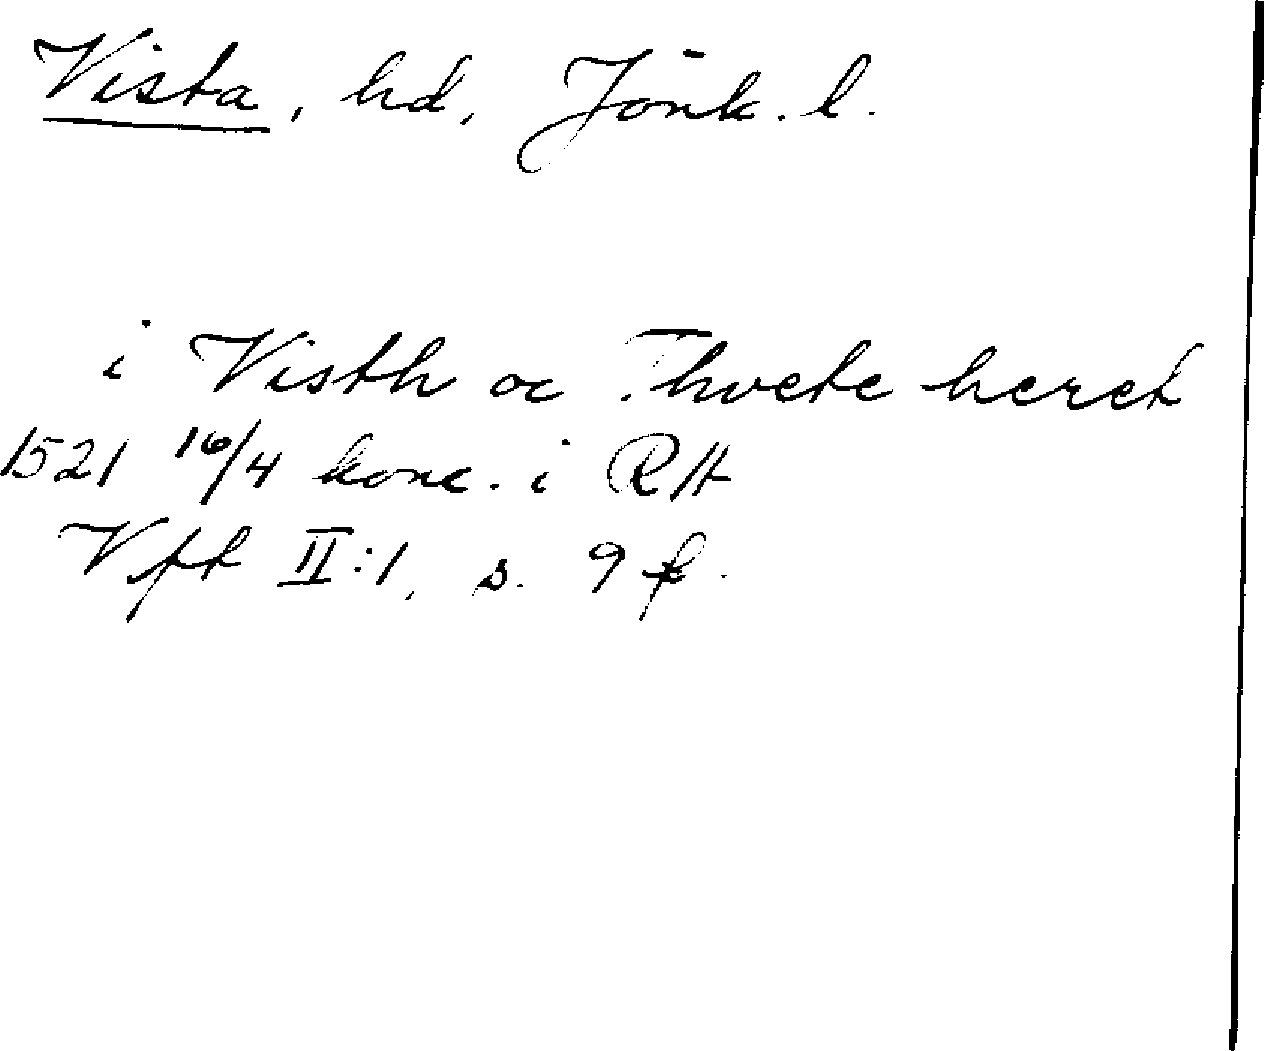 Vista, hd, Jönk. l.
i Visth oc Thvete heret
1521 16/4 konc. i RH
Vft II:1, s. 9 f.